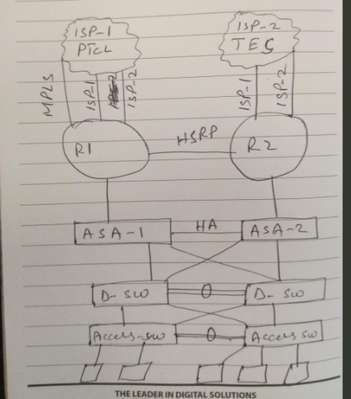 ISP-1
PTCL
ISP-2
TES
MPLS
ISP-1
ISP-2
ISP-1
ISP-2
R1
HSRP
R2
ASA-1
HA
ASA-2
D-SW
D-SW
Access-sw
Access sw
THE LEADER IN DIGITAL SOLUTIONS